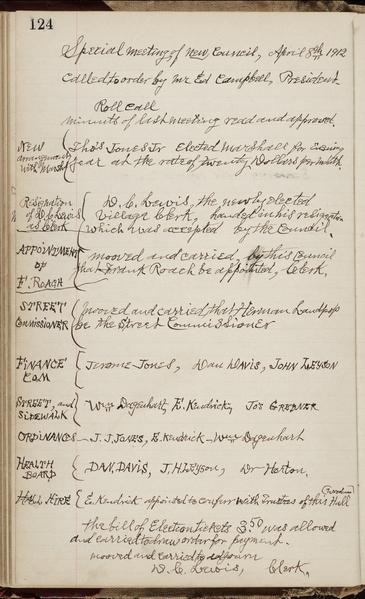 124
Special meeting of New Council, April 8th 1912
Called to order by Mr Ed Campbell, President
Roll Call
minuts of last meeting read and approved
New arrangements with Marshal { Tho's Jones Jr Elected Marshall for Ensuing
year at the rate of Twenty Dollars per month.
Resignation of D.C. Lewis as Clerk { D. C. Lewis, the newly elected
Village Clerk, handed in his resignation
which was accepted by the Council.
APPOINTMENT OF F. ROACH { mooved and carried, by this Council
that Frank Roach be appointed, Clerk.
STREET COMMISSIONER { mooved and carried that Herman
be the Street Commissioner
FINANCE COM { Jerome Jones, Dan Davis, JOHN LEYSON
STREET, and SIDEWALK { Wm Degenhart, E. Kendrick, Jos GREBNER
ORDINANCES - J. J. JONES, E. Kendrick - Wm Degenhart
HEALTH BOARD { DAN. DAVIS, J. H. LEYSON, Dr Horton.
HALL HIRE { E. Kendrick appointed to confurr with Trustees of this Hall
the bill of Election tickets 3.50 was allowed
and carried to draw order for payment.
mooved and carried to adjourn
D. C. Lewis, Clerk.